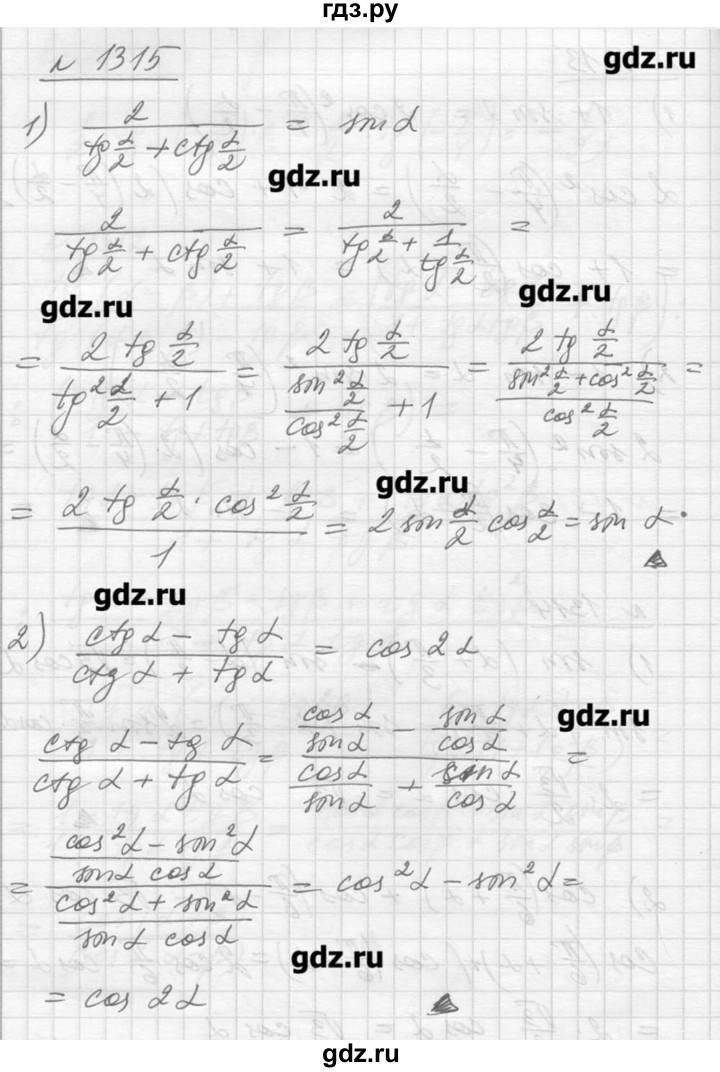 гдз.ру
№ 1315
gdz.ru
1) 2 / (tg α/2 + ctg α/2) = sin α
gdz.ru
2 / (tg α/2 + ctg α/2) = 2 / (tg α/2 + 1 / tg α/2) =
gdz.ru
gdz.ru
= 2 tg α/2 / (tg² α/2 + 1) = 2 tg α/2 / (sin² α/2 / cos² α/2 + 1) = 2 tg α/2 / ((sin² α/2 + cos² α/2) / cos² α/2) =
gdz.ru
= 2 tg α/2 · cos² α/2 / 1 = 2 sin α/2 cos α/2 = sin α.
gdz.ru
2) (ctg α − tg α) / (ctg α + tg α) = cos 2α
gdz.ru
(ctg α − tg α) / (ctg α + tg α) = (cos α / sin α − sin α / cos α) / (cos α / sin α + sin α / cos α) =
= ((cos² α − sin² α) / (sin α cos α)) / ((cos² α + sin² α) / (sin α cos α)) = cos² α − sin² α =
gdz.ru
= cos 2α
gdz.ru